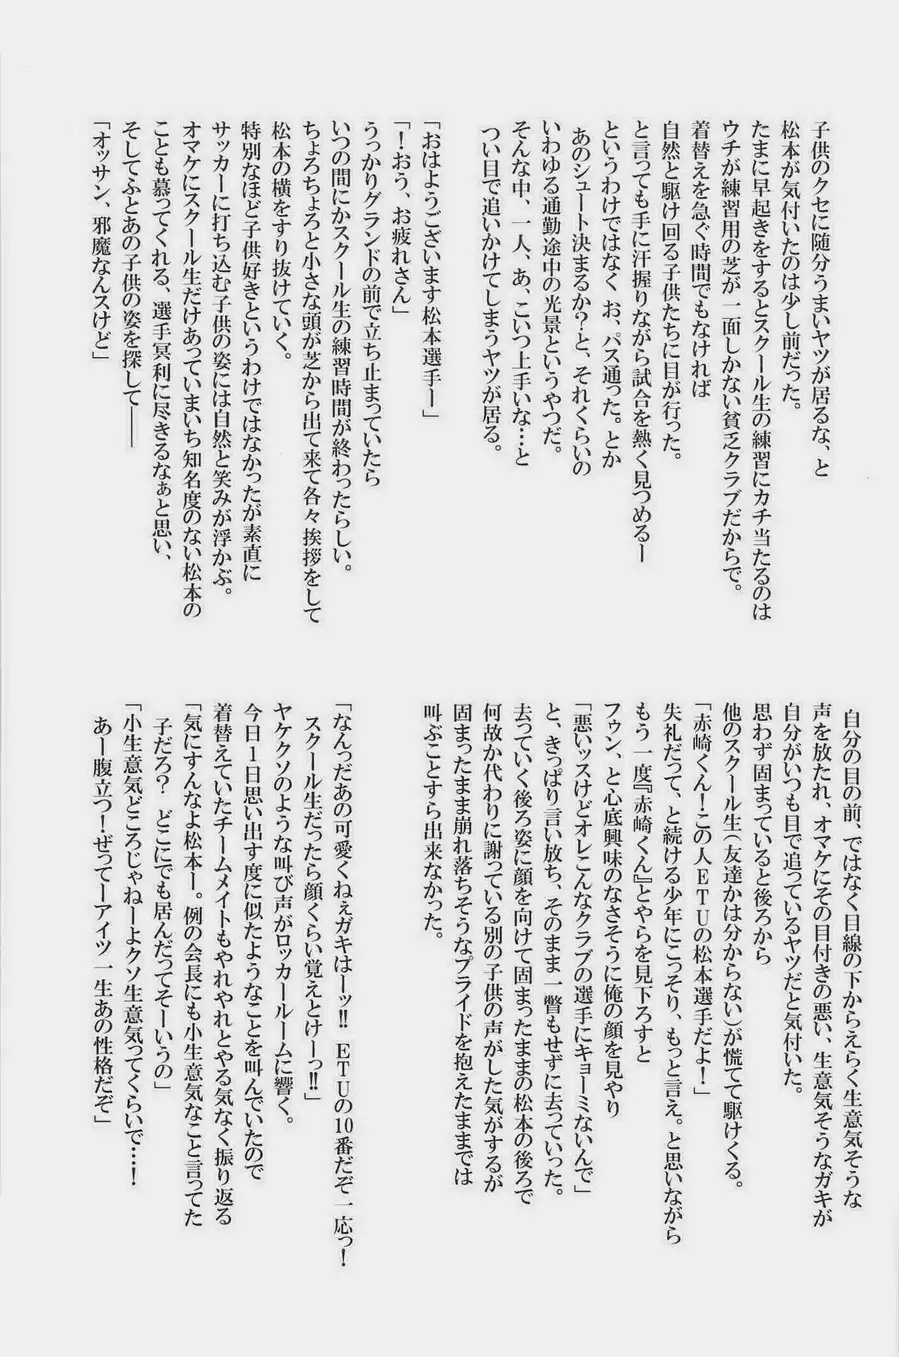 子供のクセに随分うまいヤツが居るな、と
松本が気付いたのは少し前だった。
たまに早起きをするとスクール生の練習にカチ当たるのは
ウチが練習用の芝が一面しかない貧乏クラブだからで。
着替えを急ぐ時間でもなければ
自然と駆け回る子供たちに目が行った。
と言っても手に汗握りながら試合を熱く見つめるー
というわけではなく お、パス通った。とか
あのシュート決まるか？と、それくらいの
いわゆる通勤途中の光景というやつだ。
そんな中、一人、あ、こいつ上手いな…と
つい目で追いかけてしまうヤツが居る。
「おはようございます松本選手ー」
「！おう、お疲れさん」
うっかりグランドの前で立ち止まっていたら
いつの間にかスクール生の練習時間が終わったらしい。
ちょろちょろと小さな頭が芝から出て来て各々挨拶をして
松本の横をすり抜けていく。
特別なほど子供好きというわけではなかったが素直に
サッカーに打ち込む子供の姿には自然と笑みが浮かぶ。
オマケにスクール生だけあっていまいち知名度のない松本の
ことも慕ってくれる、選手冥利に尽きるなぁと思い、
そしてふとあの子供の姿を探して――
「オッサン、邪魔なんスけど」
自分の目の前、ではなく目線の下からえらく生意気そうな
声を放たれ、オマケにその目付きの悪い、生意気そうなガキが
自分がいつも目で追っているヤツだと気付いた。
思わず固まっていると後ろから
他のスクール生（友達かは分からない）が慌てて駆けくる。
「赤崎くん！この人ＥＴＵの松本選手だよ！」
失礼だって、と続ける少年にこっそり、もっと言え。と思いながら
もう一度『赤崎くん』とやらを見下ろすと
フゥン、と心底興味のなさそうに俺の顔を見やり
「悪いッスけどオレこんなクラブの選手にキョーミないんで」
と、きっぱり言い放ち、そのまま一瞥もせずに去っていった。
去っていく後ろ姿に顔を向けて固まったままの松本の後ろで
何故か代わりに謝っている別の子供の声がした気がするが
固まったまま崩れ落ちそうなプライドを抱えたままでは
叫ぶことすら出来なかった。
「なんっだあの可愛くねぇガキはーッ!! ＥＴＵの10番だぞ一応っ！
スクール生だったら顔くらい覚えとけーっ!!」
ヤケクソのような叫び声がロッカールームに響く。
今日１日思い出す度に似たようなことを叫んでいたので
着替えていたチームメイトもやれやれとやる気なく振り返る
「気にすんなよ松本ー。例の会長にも小生意気なこと言ってた
子だろ？ どこにでも居んだってそーいうの」
「小生意気どころじゃねーよクソ生意気ってくらいで…！
あー腹立つ！ぜってーアイツ一生あの性格だぞ」